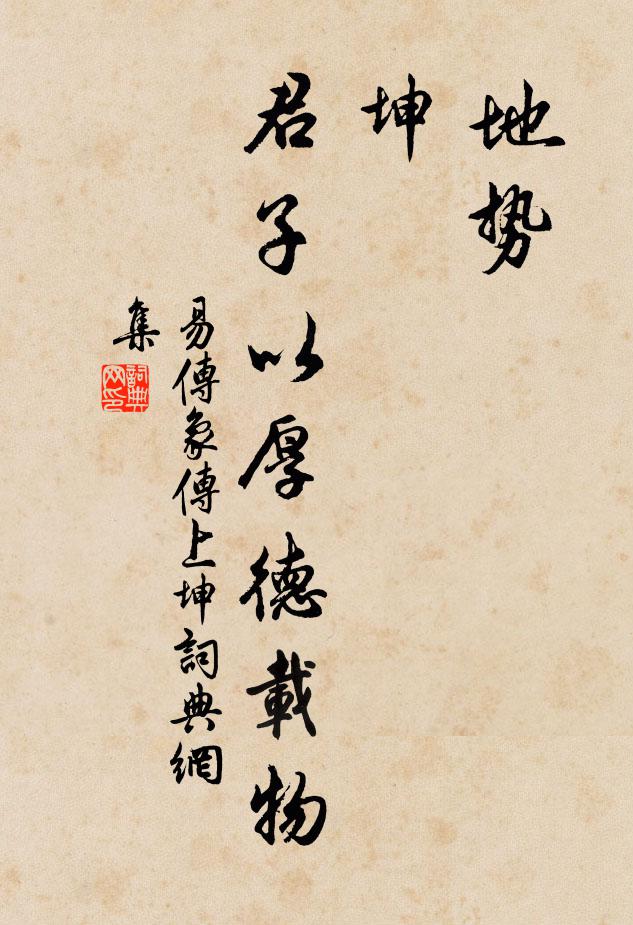 地势
坤
君子以厚德載物
易傳象傳上坤詞典網
集
詞典
网印